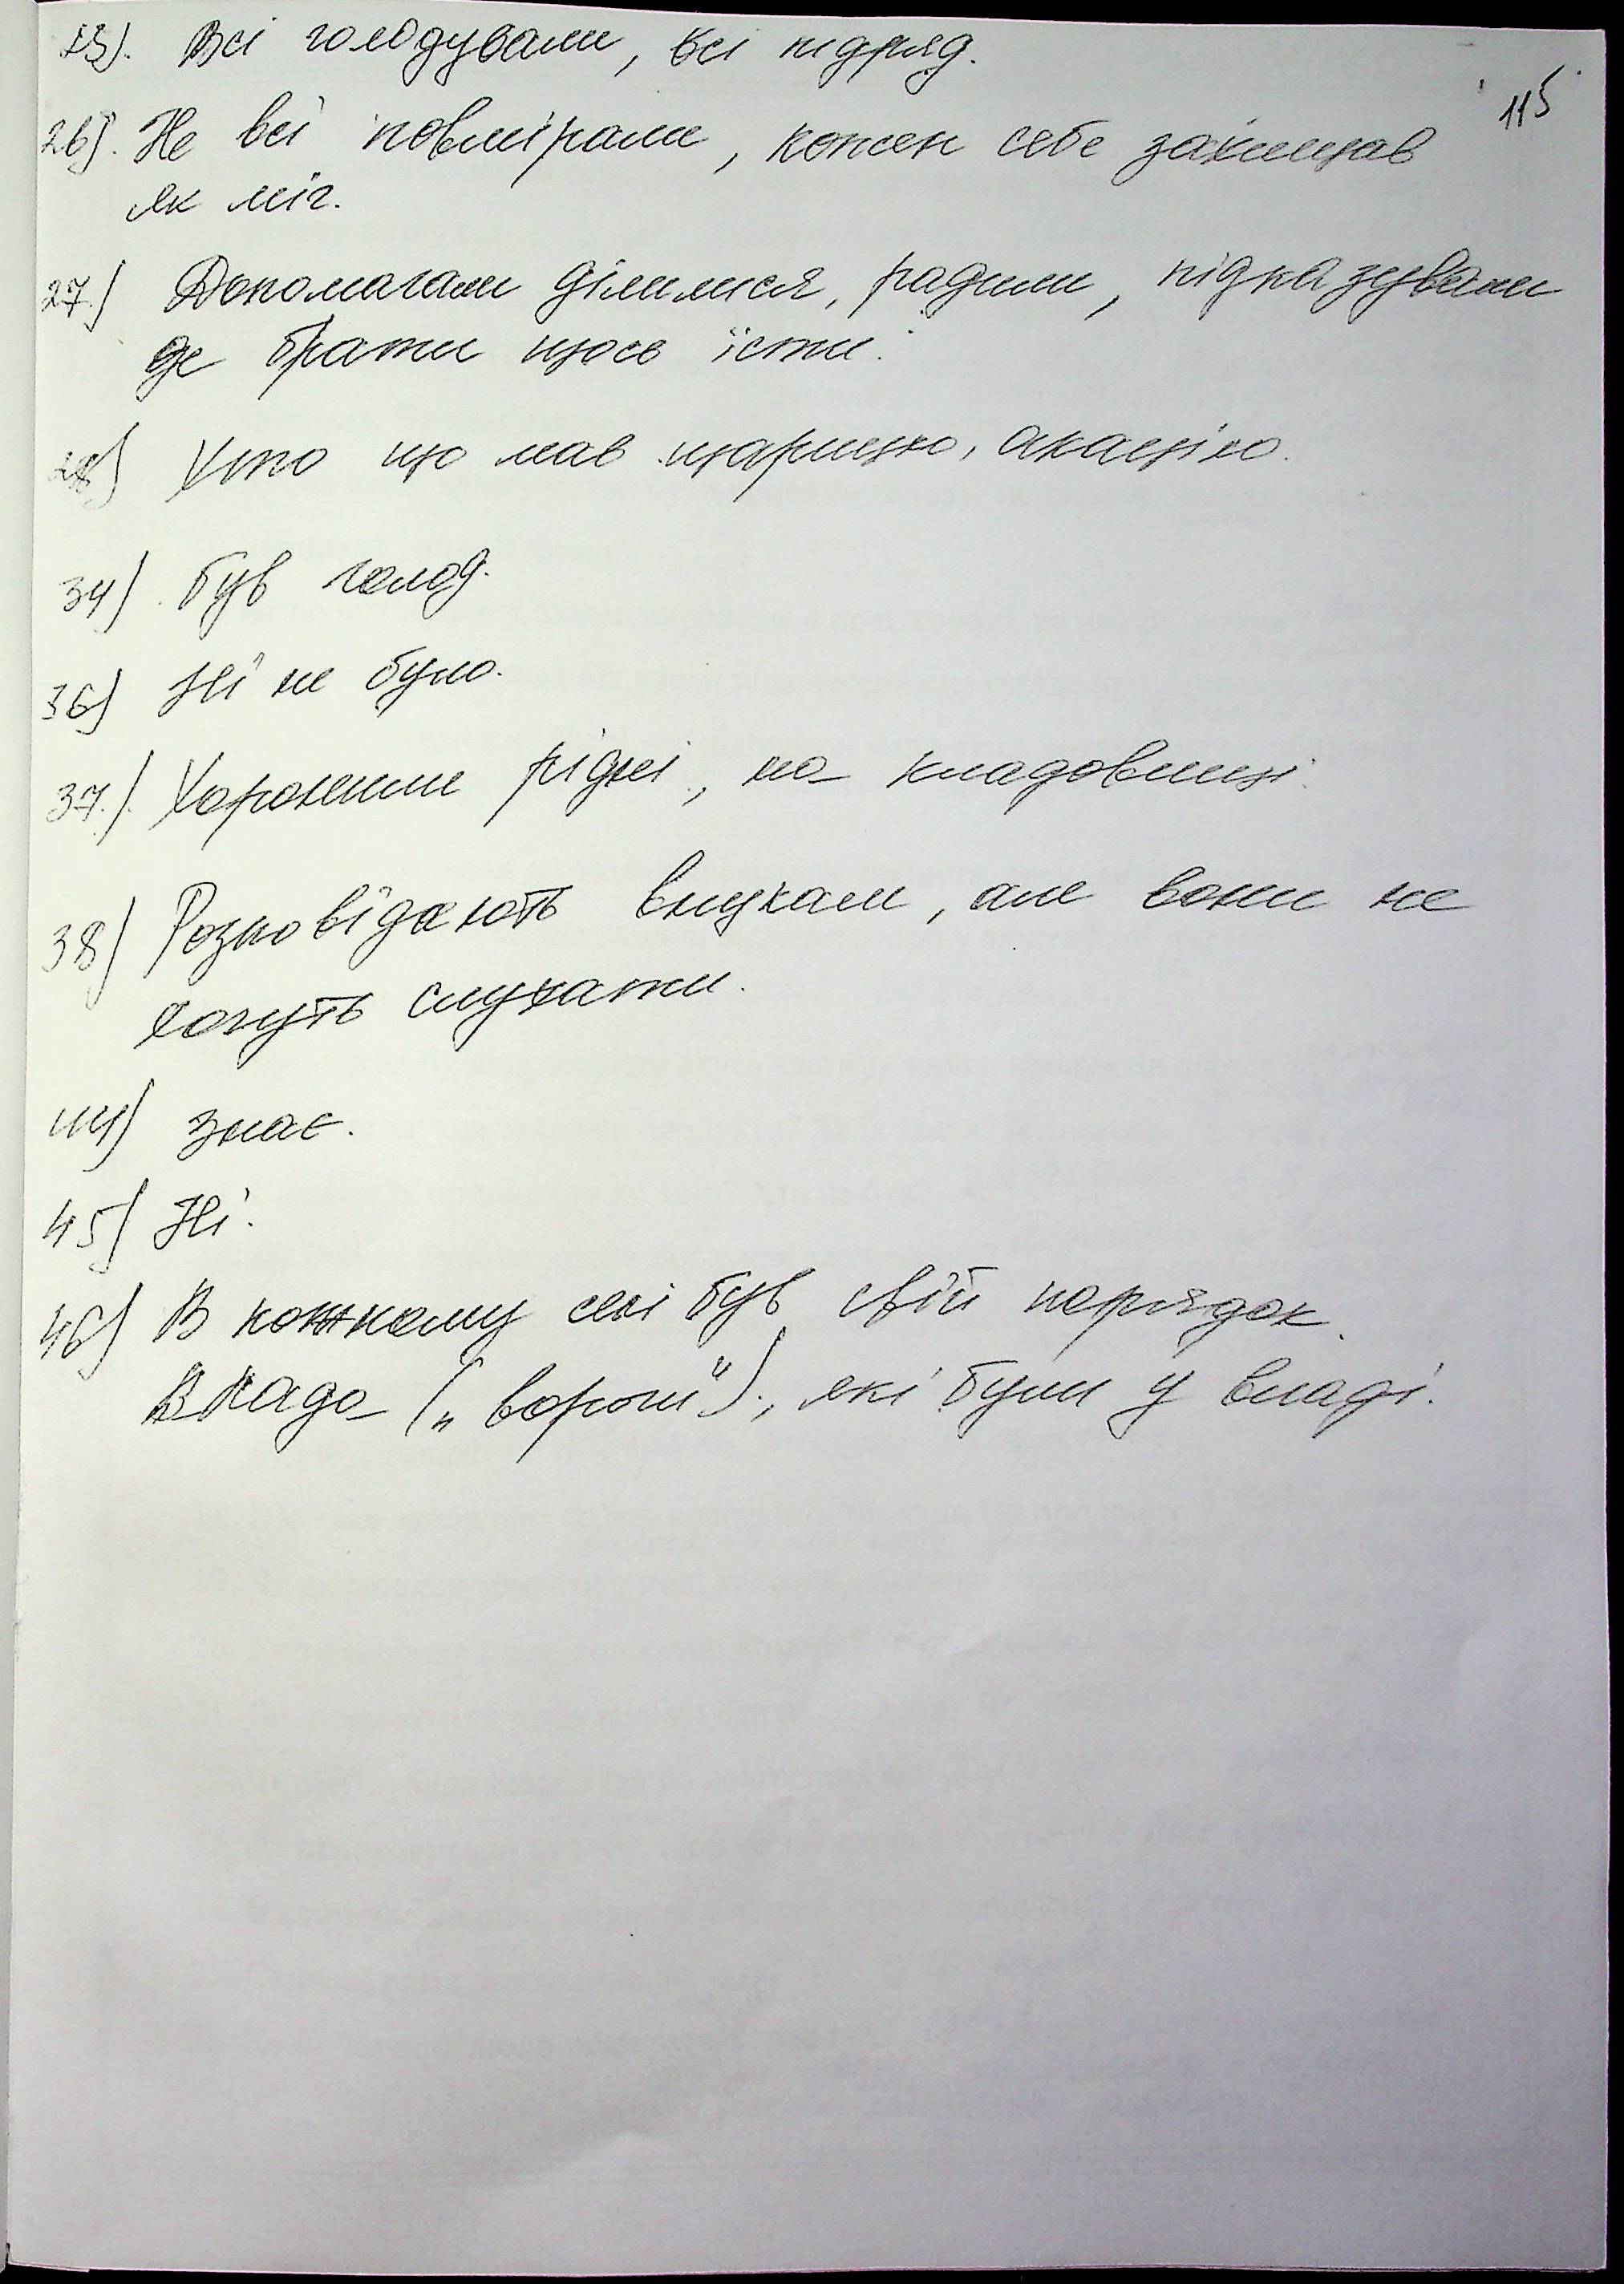 115
23). Всі голодували, всі підряд.
26). Не всі повмірали, кожен себе захищав
як міг.
27.) Допомагали ділилися, радили, підказували
де брати щось їсти.
28) Хто що мав щирицю, акацію.
34) Був голод.
36) Ні не було.
37.) Хоронили рідні, на кладовищі.
38) Розповідають внукам, але вони не
хочуть слухати.
44) Знає.
45) Ні.
46) В кожному селі був свій порядок.
Влада („вороги"), які були у владі.